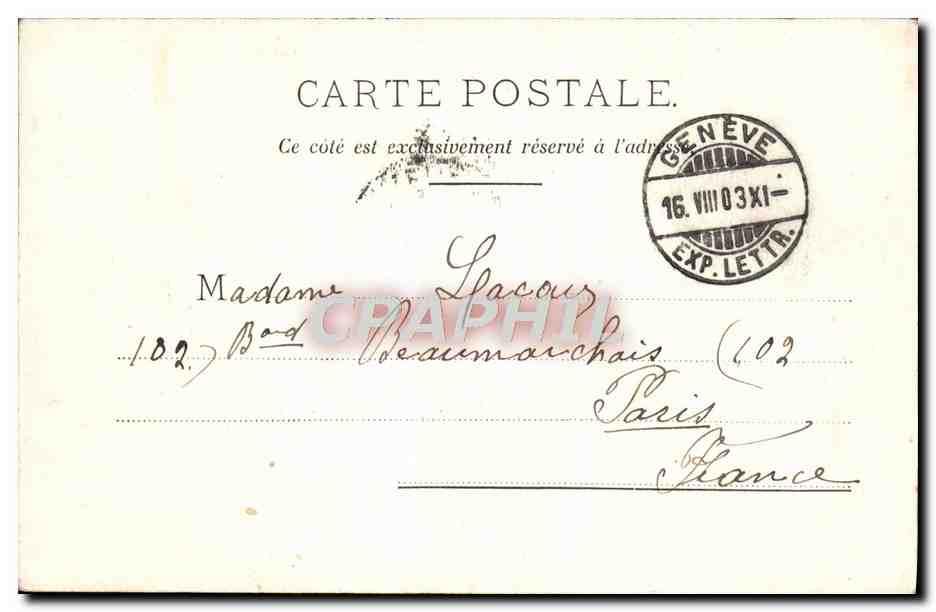 CARTE POSTALE.
Ce côté est exclusivement réservé à l'adresse.
GENÈVE
16. VIII 03 XI-
EXP. LETTR.
Madame Lacour
102, Bard Beaumarchais (102
Paris
France
CPAPHIL